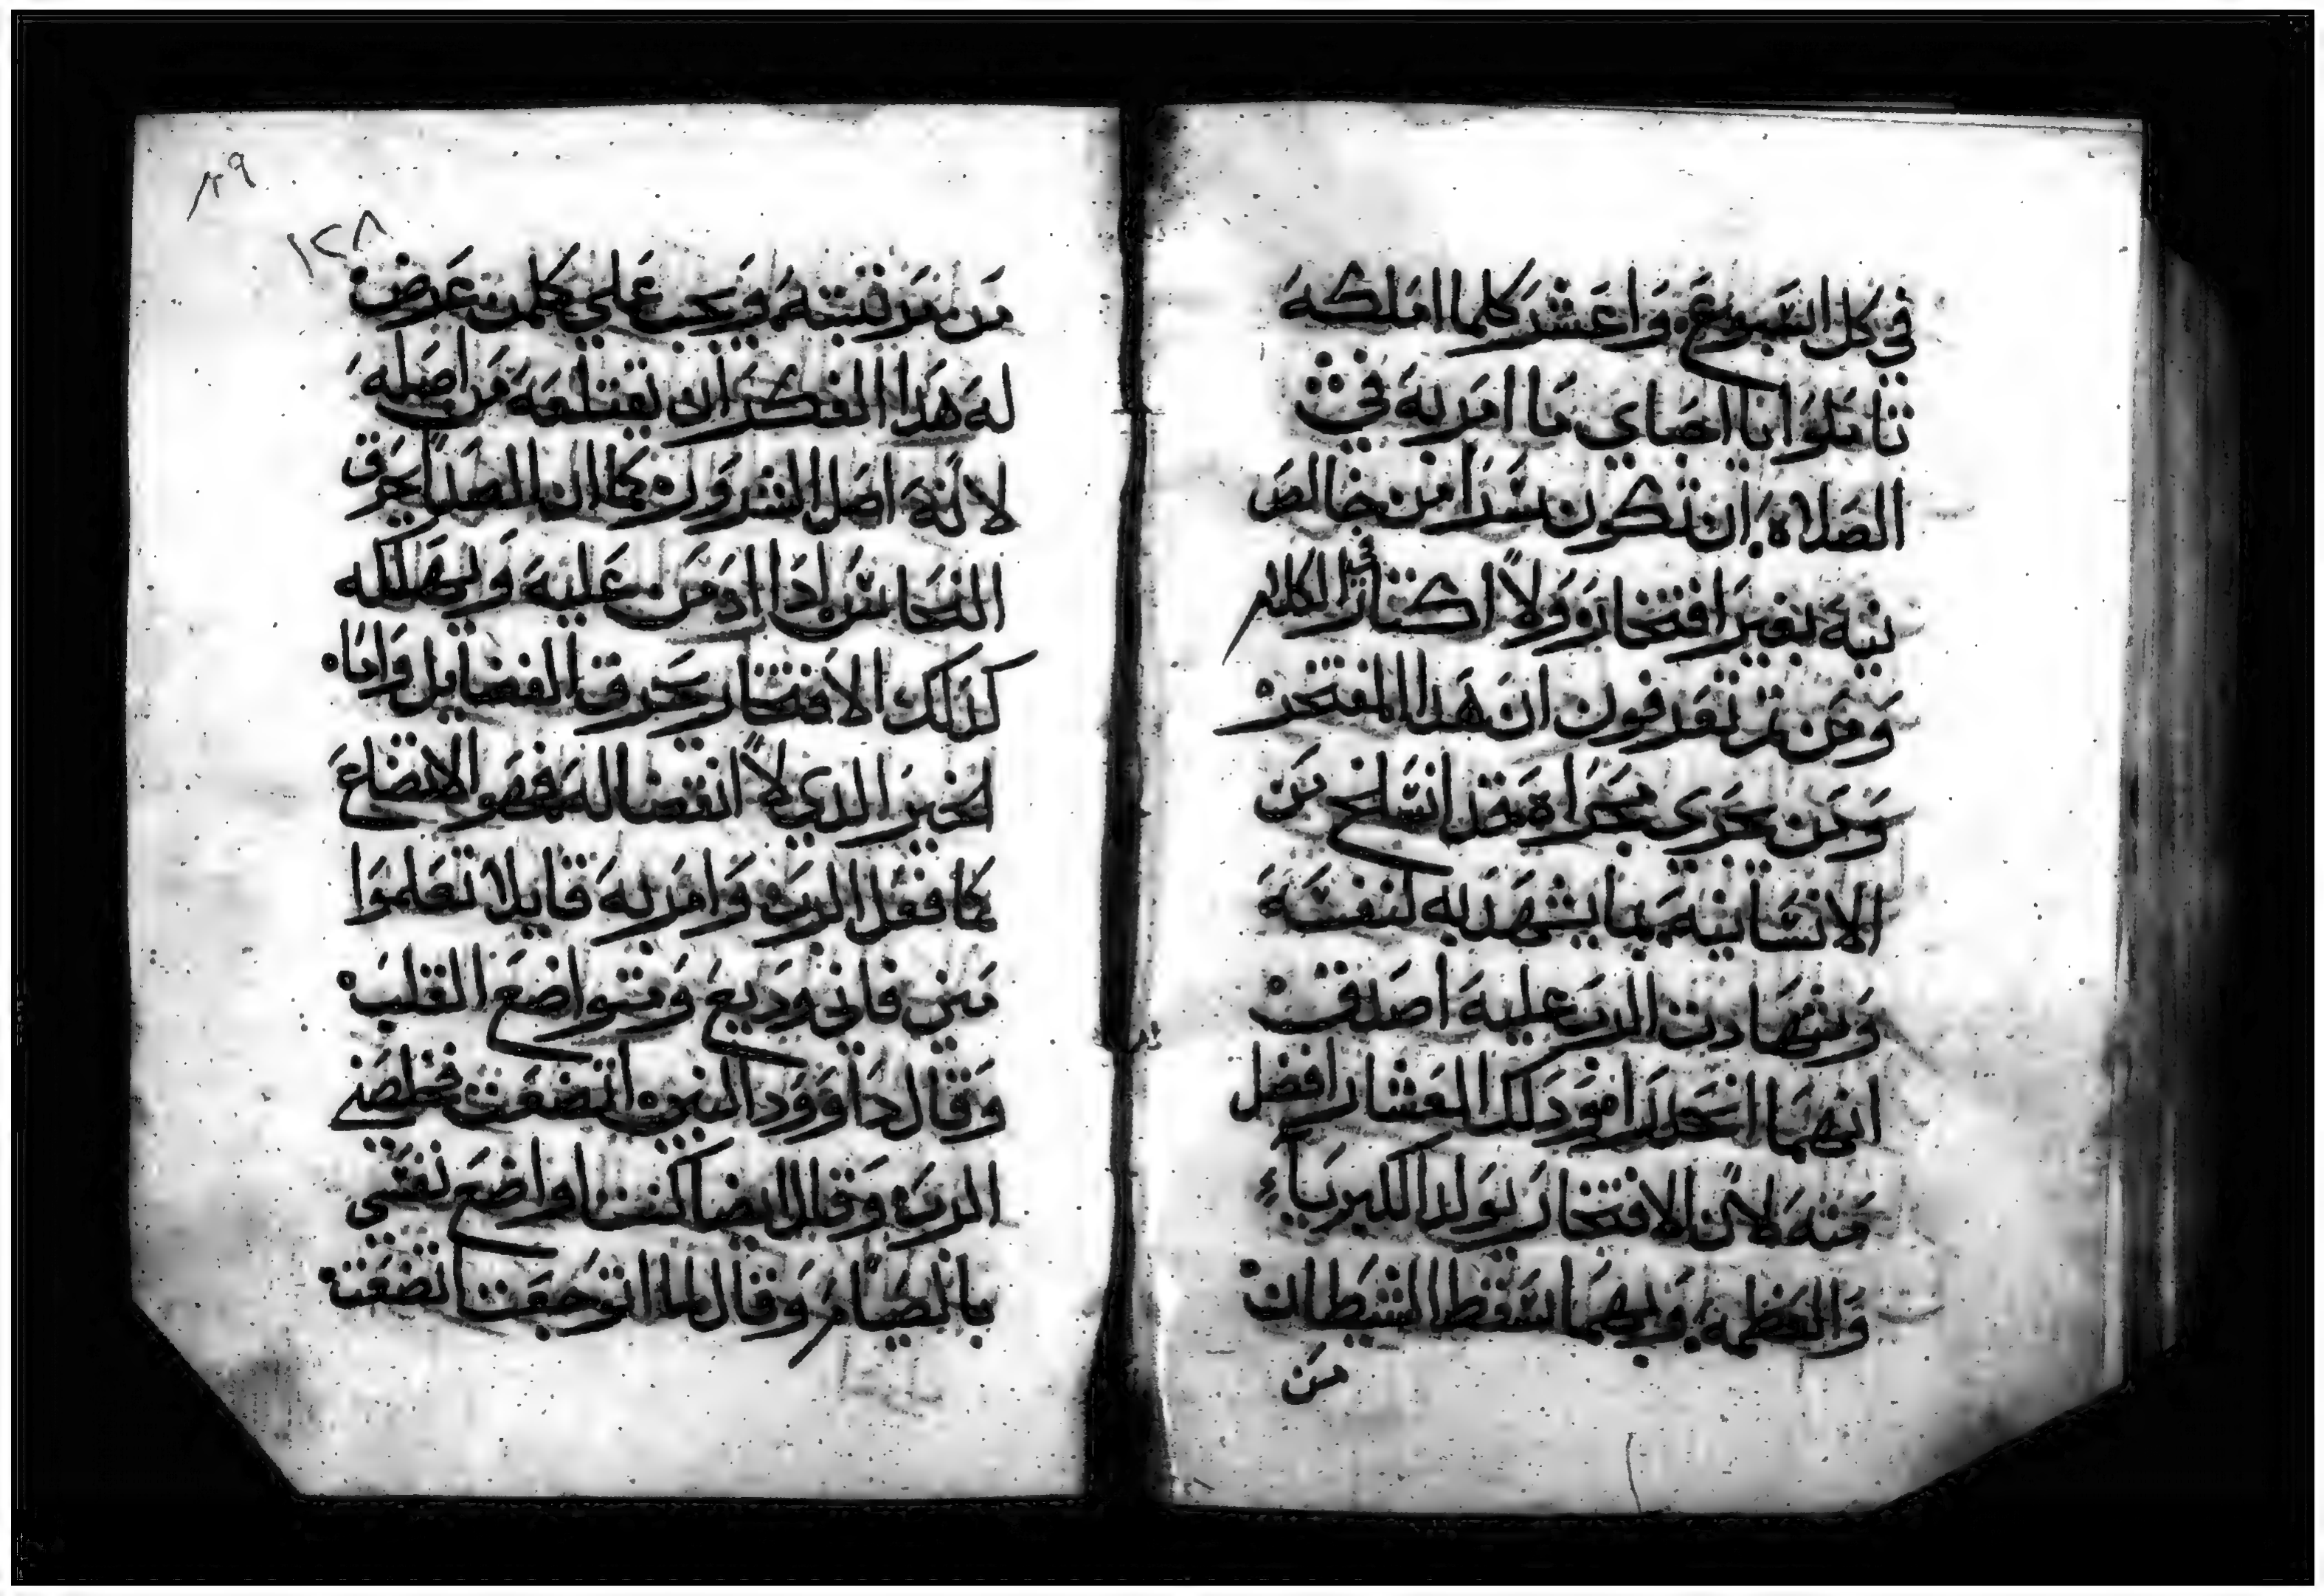 في كل اسبوع واعشر كلما املكه
تاملوا يا احباي ما امر به في
الصلاة ان تكون سرا من خالص
نيه بغير افتخار ولا اكتار في الكلام
ومن تم تعرفون ان هدا المفتخر
ومن يجرى مجراه قد انسلخ من
الانسانيه بما يشهد به لنفسه
وشهادت الرب عليه اصدق
انهما انحدرا ودلك العشار افضل
منه لان الافتخار يولد الكبرياء
والعظمه وبهما سقط الشيطان
من
٨٩
١٢٨
من مرتبته ويجب على كلمن عرض
له هدا الفكر ان يقتلعه من اصله
لانه اصل الشرور كما ان الصدا يحرق
النحاس ادا ادمن عليه ويهلكه
كدلك الافتخار يحرق الفضايل واما
الخير الدي لا انقضا له فهو الاتضاع
كما فعل الرب وامر به قايلا تعلموا
مني فاني وديع ومتواضع القلب
وقال داوود النبي اتضعت فخلصني
الرب وقال ايضا كنت اواضع نفسي
بالصيام وقال لما اتوجعت اتضعت